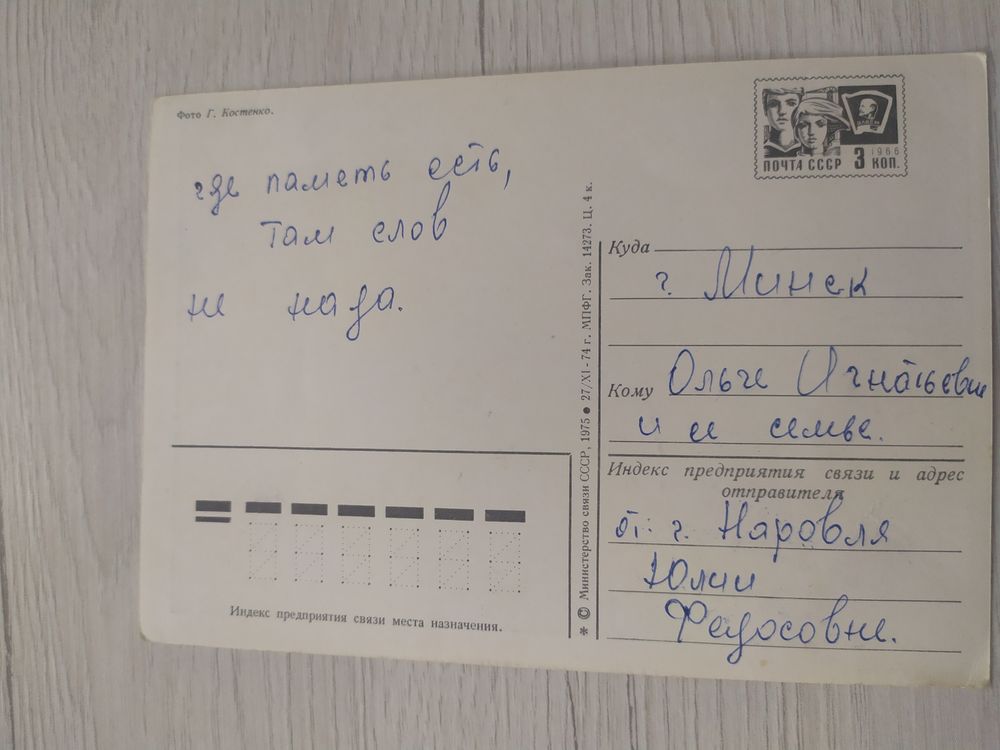 Фото Г. Костенко.
где паметь есть,
там слов
не нада.
Индекс предприятия связи места назначения.
* © Министерство связи СССР, 1975 ● 27/XI - 74 г. МПФГ. Зак. 14273. Ц. 4 к.
1966
ПОЧТА СССР 3 КОП.
Куда
г. Минск
Кому Ольге Игнатьевне
и ее семье.
Индекс предприятия связи и адрес
отправителя
от: г. Наровля
Юлии
Федосовне.